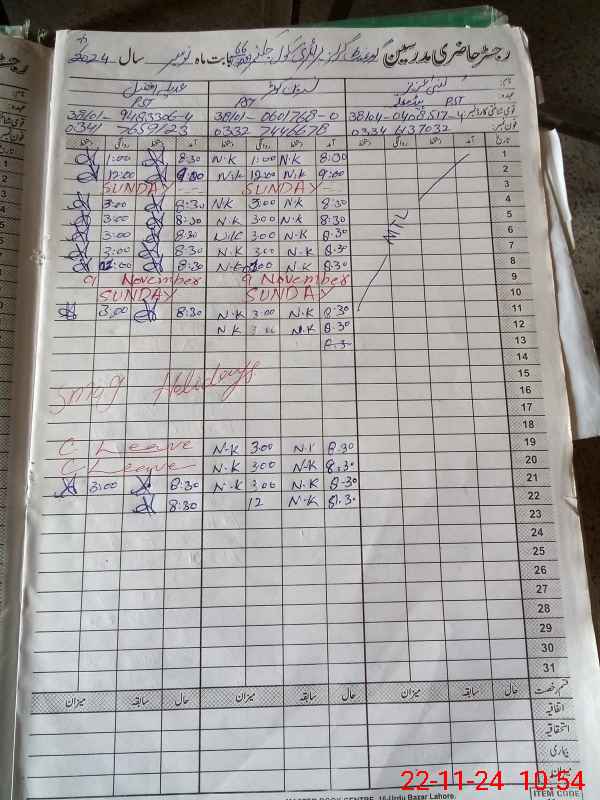 رجسٹر حاضری مدرسین گورنمنٹ گرلز پرائمری سکول بابت ماہ نومبر سال 2024
PST PST PST
38101-9483306-4 38101-0601768-0 38104-0408517-4
0341 7659123 0332 7446678 0334
دستخط روانگی دستخط آمد دستخط روانگی دستخط آمد دستخط روانگی دستخط آمد تاریخ
1:00 8:30 N.K 1:00 N.K 8:30 1
12:00 9:00 N.K 12:00 N.K 9:00 2
SUNDAY SUNDAY 3
3:00 8:30 N.K 3:00 N.K 8:30 4
3:00 8:30 N.K 3:00 N.K 8:30 5
3:00 8:30 N.K 3:00 N.K 8:30 6
3:00 8:30 N.K 3:00 N.K 8:30 7
8:30 N.K N.K 8:30 8
9 November 9 November 9
SUNDAY SUNDAY 10
3:00 8:30 N.K 3:00 N.K 8:30 11
N.K 3:00 N.K 8:30 12
8:30 13
14
15
Smog Holidays 16
17
18
C Leave N.K 3:00 N.K 8:30 19
C Leave N.K 3:00 N.K 8:30 20
3:00 8:30 N.K 3:00 N.K 8:30 21
8:30 12 N.K 8:30 22
23
24
25
26
27
28
29
30
31
میزان سابقہ حال میزان سابقہ حال میزان سابقہ حال قسم رخصت
اتفاقیہ
استحقاقیہ
بیماری
22-11-24 10:54
16-Urdu Bazar Lahore. ITEM CODE